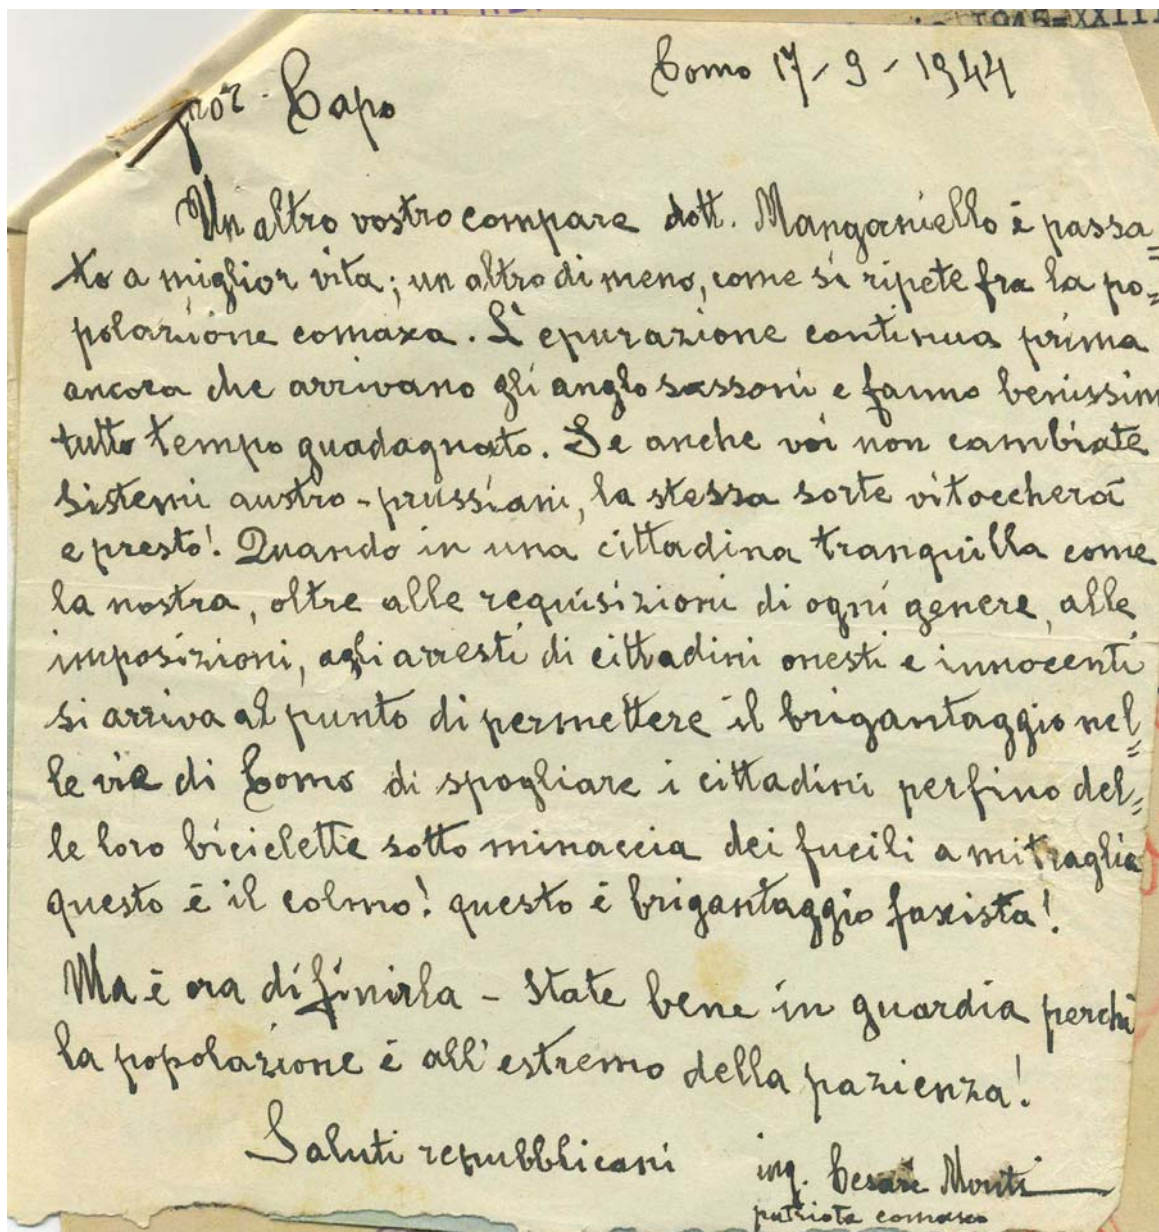 1945=XXIII
Como 17-9-1944
Capo
Un altro vostro compare dott. Manganiello è passa=
to a miglior vita; un altro di meno, come si ripete fra la po=
polazione comaxa. L'epurazione continua prima
ancora che arrivano gli anglo sassoni e fanno benissim
tutto tempo guadagnato. Se anche voi non cambiate
sistemi austro-prussiani, la stessa sorte vi toccherà
e presto! Quando in una cittadina tranquilla come
la nostra, oltre alle requisizioni di ogni genere, alle
imposizioni, agli arresti di cittadini onesti e innocenti
si arriva al punto di permettere il brigantaggio nel=
le vie di Como di spogliare i cittadini perfino del=
le loro biciclette sotto minaccia dei fucili a mitraglia
questo è il colmo! questo è brigantaggio faxista!
Ma è ora di finirla - State bene in guardia perchè
la popolazione è all'estremo della pazienza!
Saluti repubblicani
ing. Cesare Monti
patriota comaxo